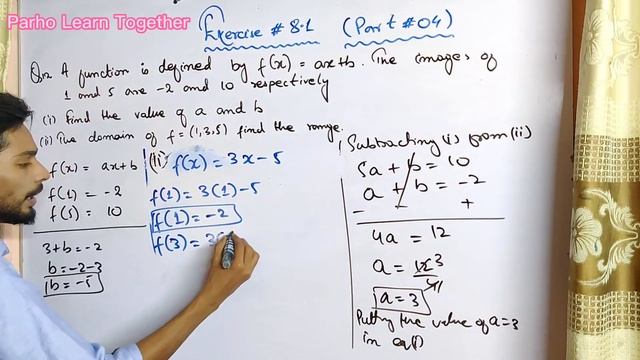 Parho Learn Together
Exercise # 8.1 (Part # 04)
A function is defined by f(x) = ax+b. The images of
1 and 5 are -2 and 10 respectively
(i) find the value of a and b
(ii) The domain of f = (1,3,5) find the range.
f(x) = ax+b
f(1) = -2
f(5) = 10
3+b = -2
b = -2-3
b = -5
(ii) f(x) = 3x-5
f(1) = 3(1)-5
f(1) = -2
f(3) = 3(
Subtracting (i) from (ii)
5a + b = 10
a + b = -2
- +
4a = 12
a = 3
a = 3
Putting the value of a=3
in eq(i)